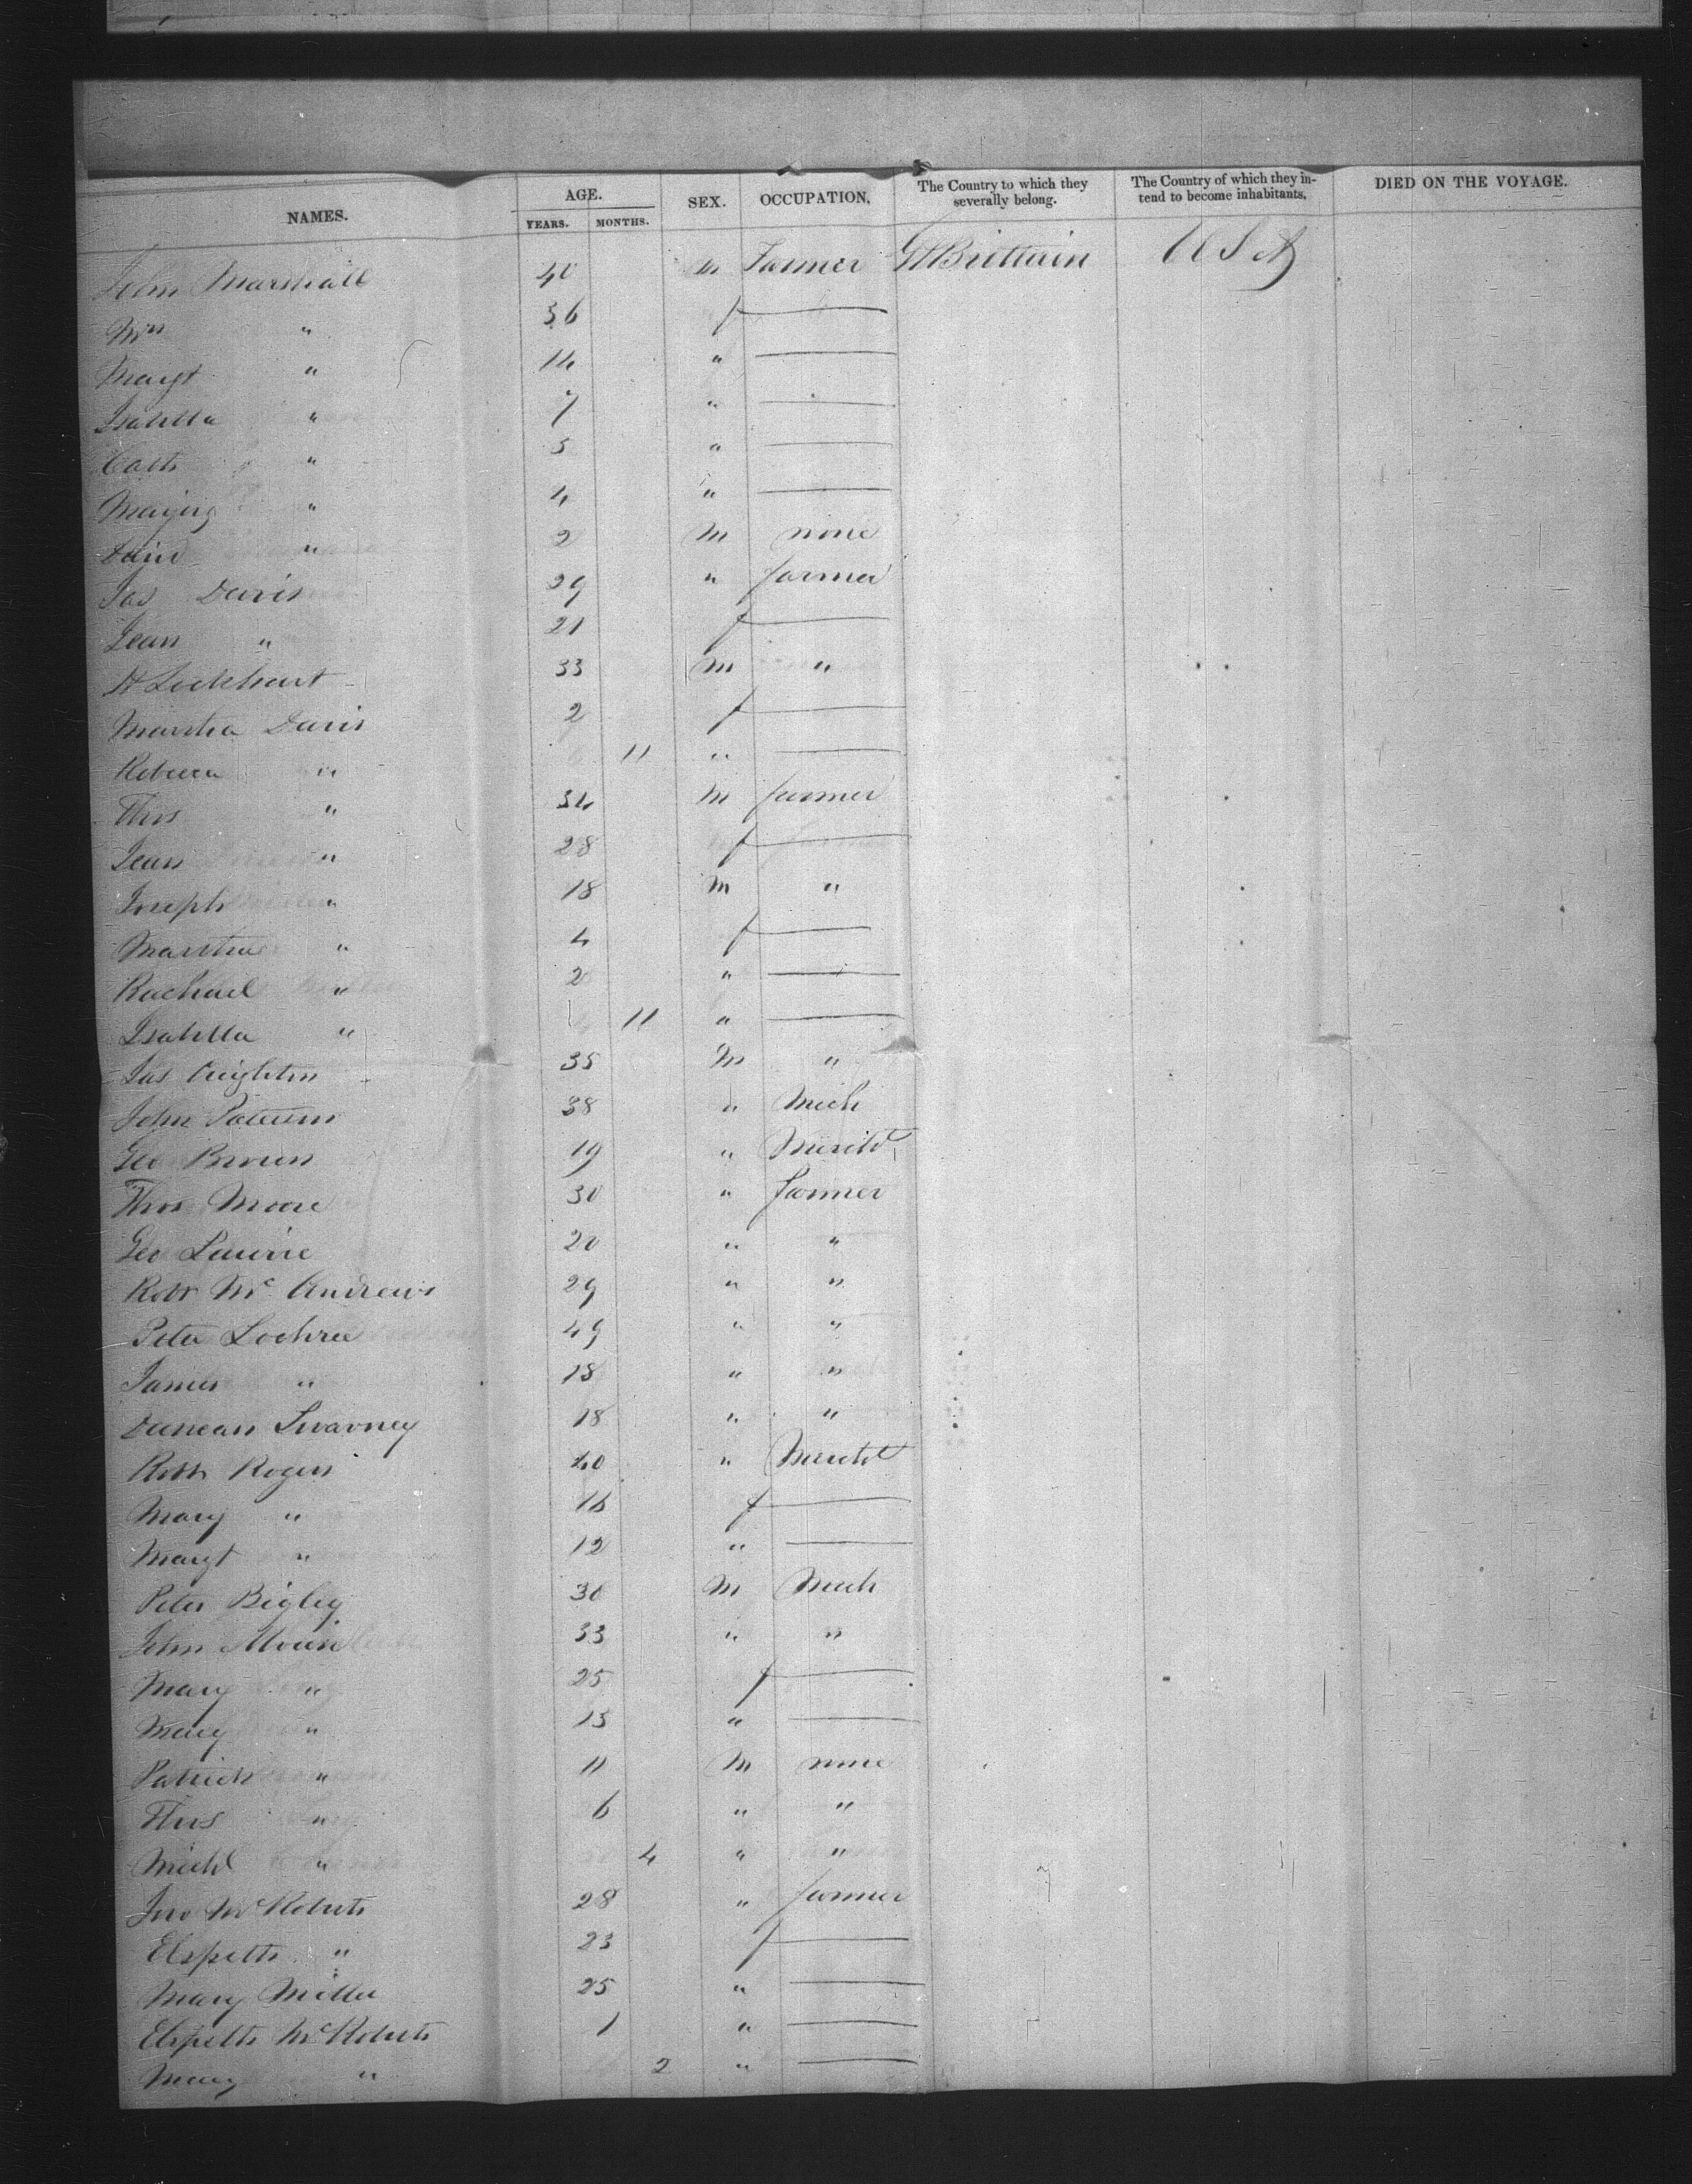 NAMES. AGE. YEARS. MONTHS. SEX. OCCUPATION. The Country to which they severally belong. The Country of which they intend to become inhabitants. DIED ON THE VOYAGE.
John Marshall 40 m Farmer Gt Brittain U S A
Mrs " 36 f —
Margt " 14 " —
Isabella " 7 " —
Cath " 5 " —
" 4 " —
" 2 m none
Jas Davis 29 " farmer
Jean " 21 f —
Lockhart 33 m "
Martha Davis 2 f —
Rebecca " 11 " —
Thos " 34 m farmer
Jean " 28 f —
Joseph " 18 m "
Martha " 4 f —
Rachael " 2 " —
Isabella " 11 " —
Jas Crighton 35 m "
John 38 " Mech
Geo Brown 19 "
Thos Moore 30 " farmer
Geo Lawrie 20 " "
Robt Mc Andrews 29 " "
Peter Lochree 49 " "
James " 18 " "
Duncan Swavney 18 " "
Robt Rogers 40 "
Mary " 16 f —
Margt " 12 " —
Peter Bigley 30 m Mech
John 33 " "
Mary " 25 f —
Mary " 13 " —
Patrick " 11 m none
Thos " 6 " "
Michl " 4 " "
Jno McRoberts 28 " farmer
Elspeth " 23 f —
Mary Miller 25 " —
Elspeth McRoberts 1 " —
Mary " 2 " —